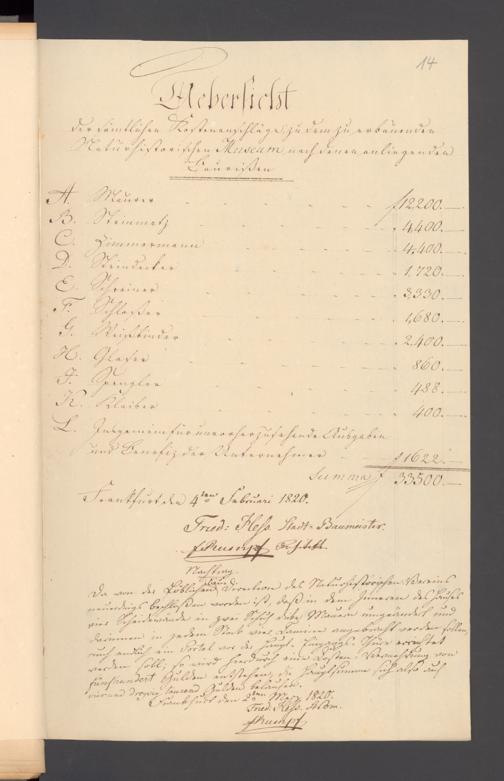 14
Uebersicht
der sämtlichen Kostenanschläge, zu dem zu erbauenden
Naturhistorischen Museum, nach denen anliegenden
Baurißen
A. Maurer f 12200.—
B. Steinmetz " 4,400.—
C. Zimmermann " 4,400.—
D. Steindecker " 1,720.—
E. Schreiner " 3330.—
F. Schloßer " 1,680.—
G. Weisbinder " 2,400.—
H. Glaser " 860.—
J. Spengler " 488.—
K. Kleiber " 400.—
L. Insgemein für unvorherzusehende Ausgaben
und Benefiz der Unternehmer f 1622.—
Summa f 33500.—
Frankfurt den 4ten Februari 1820.
Fried: Hess. Stadt-Baumeister.
Nachtrag.
Da von der Löblichen Direction des Naturhistorischen Vereins
neuerdings beschloßen worden ist, daß in dem Inneren des Hauses
vier Scheidewände in zwei Schuh dicke Mauern umgeändert und
darinnen in jedem Stock vier Camine angebracht werden sollen,
auch endlich ein Portal vor der Haupt Eingangs Thüre errichtet
werden soll; so wird hierdurch eine Kosten Vermehrung von
fünfhundert Gulden entstehen, die Hauptsumme sich also auf
vier und dreyßig tausend Gulden belaufen.
Frankfurt den 2ten März 1820.
Fried. Hess.